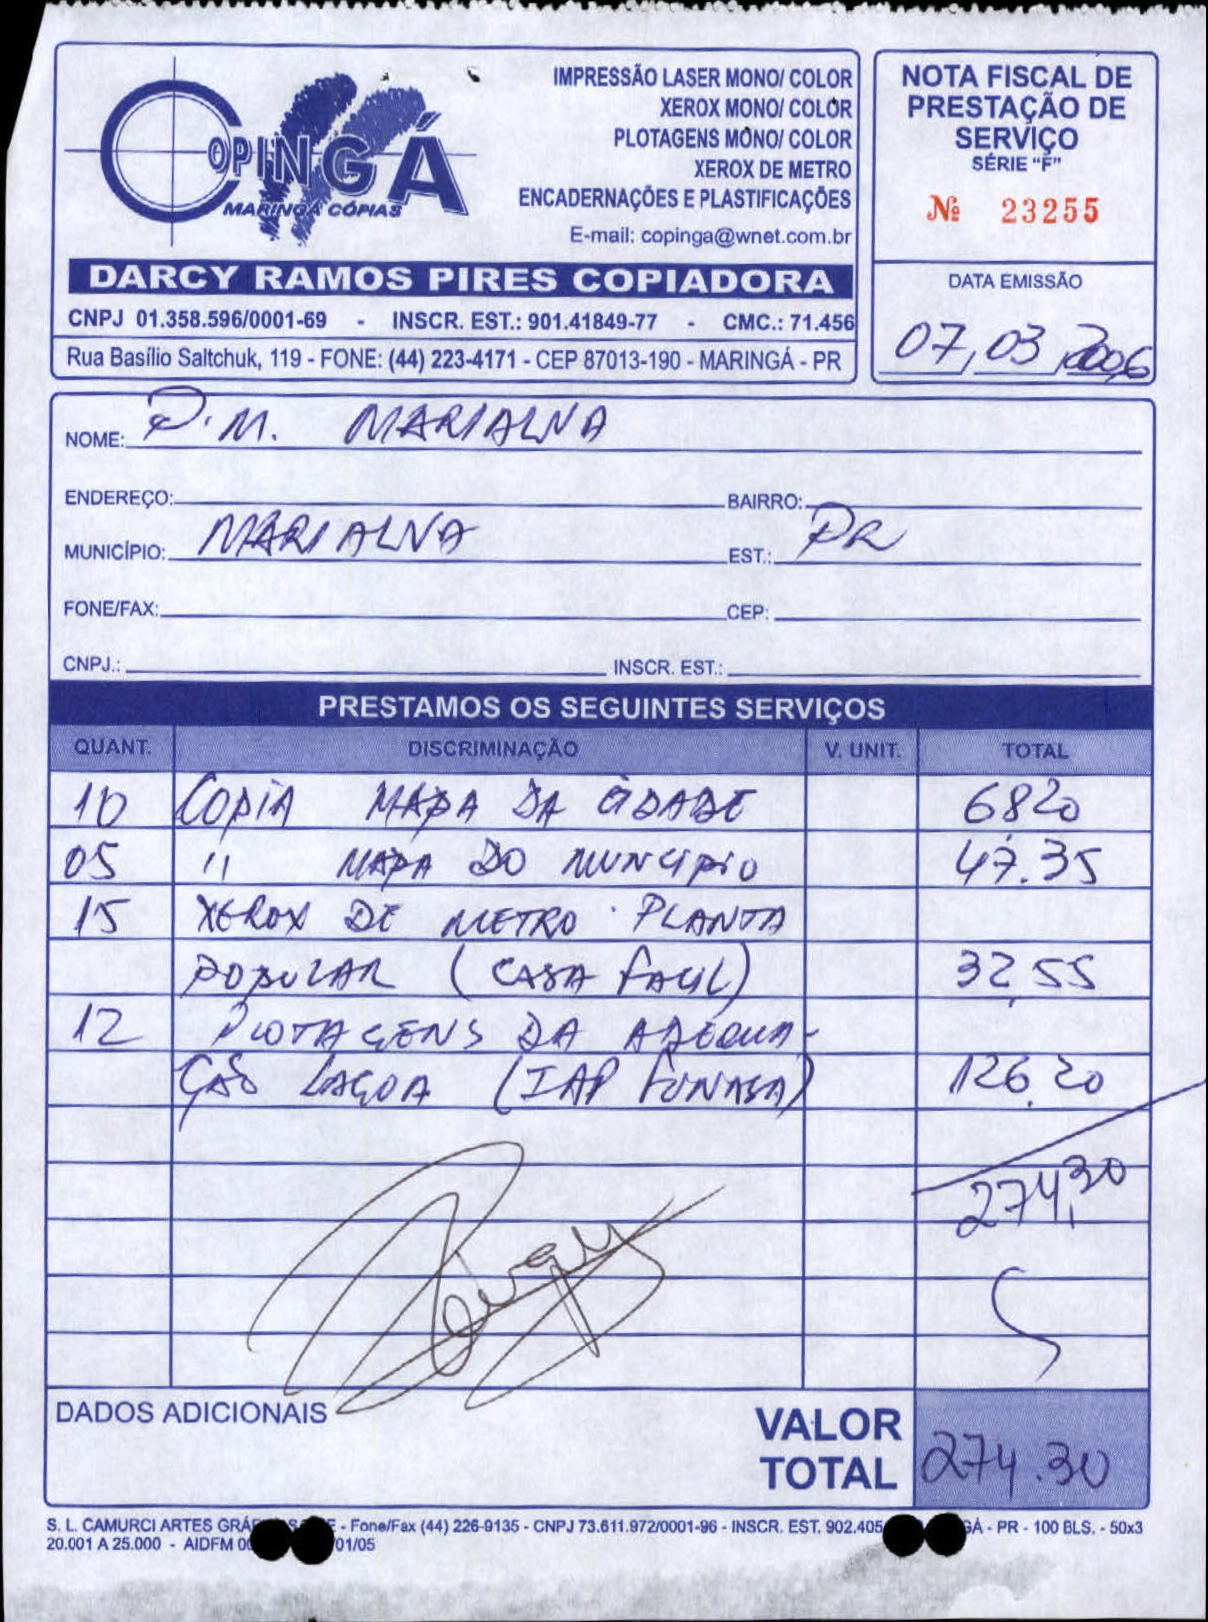 COPINGÁ
MARINGÁ CÓPIAS
IMPRESSÃO LASER MONO/ COLOR
XEROX MONO/ COLOR
PLOTAGENS MONO/ COLOR
XEROX DE METRO
ENCADERNAÇÕES E PLASTIFICAÇÕES
E-mail: copinga@wnet.com.br
DARCY RAMOS PIRES COPIADORA
CNPJ 01.358.596/0001-69 - INSCR. EST.: 901.41849-77 - CMC.: 71.456
Rua Basílio Saltchuk, 119 - FONE: (44) 223-4171 - CEP 87013-190 - MARINGÁ - PR
NOTA FISCAL DE
PRESTAÇÃO DE
SERVIÇO
SÉRIE “F”
Nº 23255
DATA EMISSÃO
07, 03, 2006
NOME: P.M. MARIALVA
ENDEREÇO: BAIRRO:
MUNICÍPIO: MARIALVA EST.: PR
FONE/FAX: CEP:
CNPJ.: INSCR. EST.:
PRESTAMOS OS SEGUINTES SERVIÇOS
QUANT. DISCRIMINAÇÃO V. UNIT. TOTAL
10 COPIA MAPA DA CIDADE 68,20
05 " MAPA DO MUNCIPIO 47.35
15 XEROX DE METRO PLANTA
POPULAR (CASA FACIL) 32,55
12 PLOTAGENS DA ADEQUA-
ÇÃO LAGOA (IAP FUNASA) 126,20
274,30
DADOS ADICIONAIS
VALOR
TOTAL 274.30
S. L. CAMURCI ARTES - Fone/Fax (44) 226-9135 - CNPJ 73.611.972/0001-96 - INSCR. EST. 902.405 - PR - 100 BLS. - 50x3
20.001 A 25.000 - AIDFM 01/05